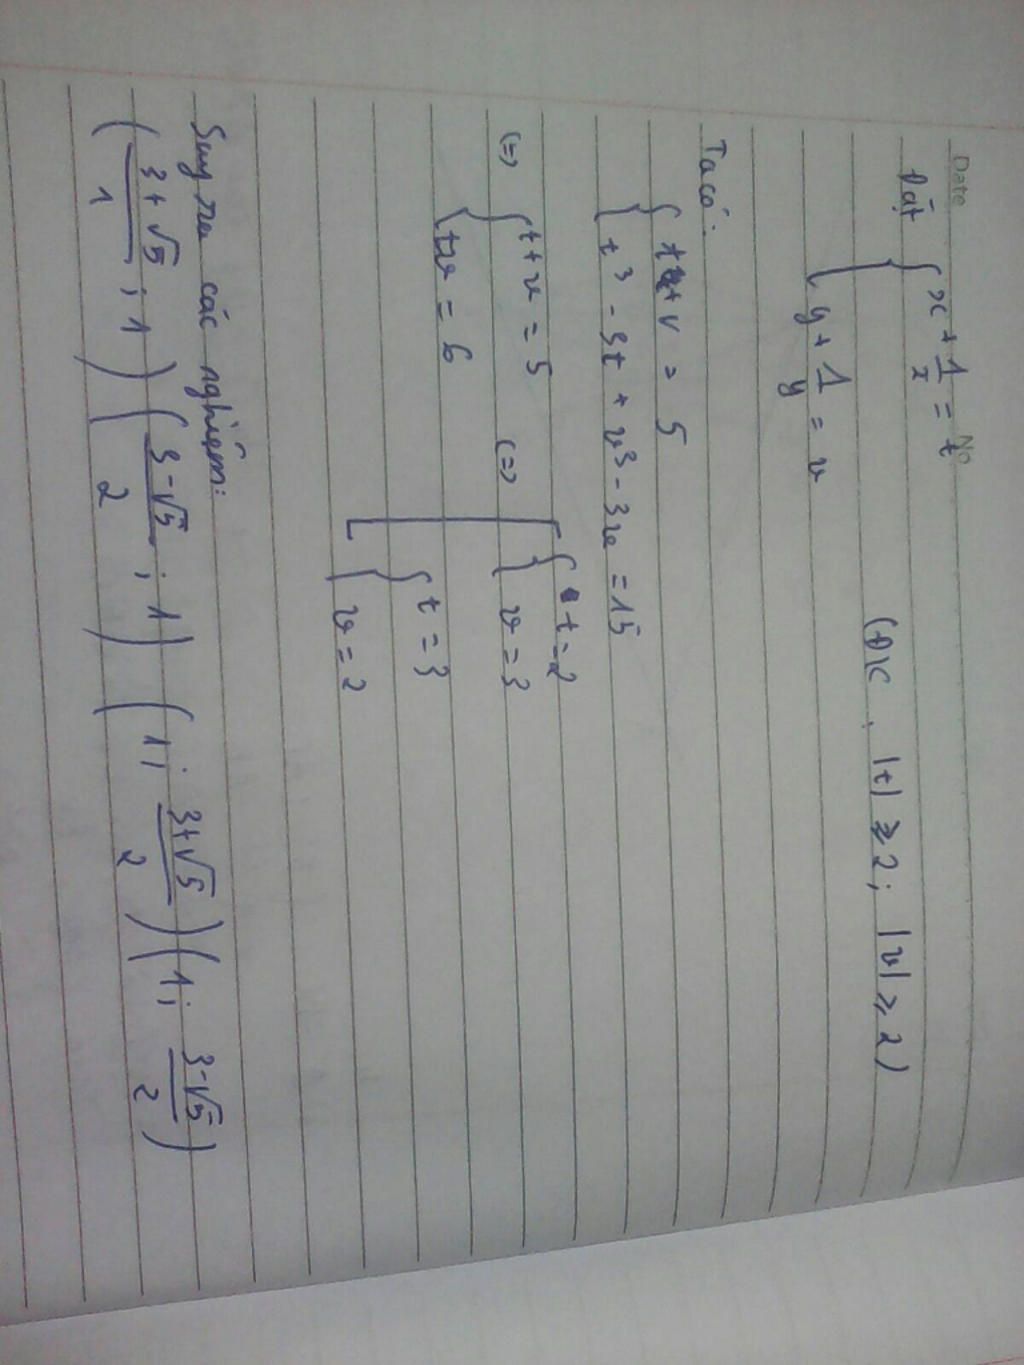 Date No
Đặt { x + 1/x = t
{ y + 1/y = v (ĐK, |t| ⩾ 2; |v| ⩾ 2)
Ta có:
{ t + v = 5
{ t³ - 3t + v³ - 3v = 15
(=) { t + v = 5
{ tv = 6
(=) [ { t = 2
{ v = 3
{ t = 3
{ v = 2
Suy ra các nghiệm:
( (3+√5)/1 ; 1 ) ( (3-√5)/2 ; 1 ) ( 1; (3+√5)/2 ) ( 1; (3-√5)/2 )